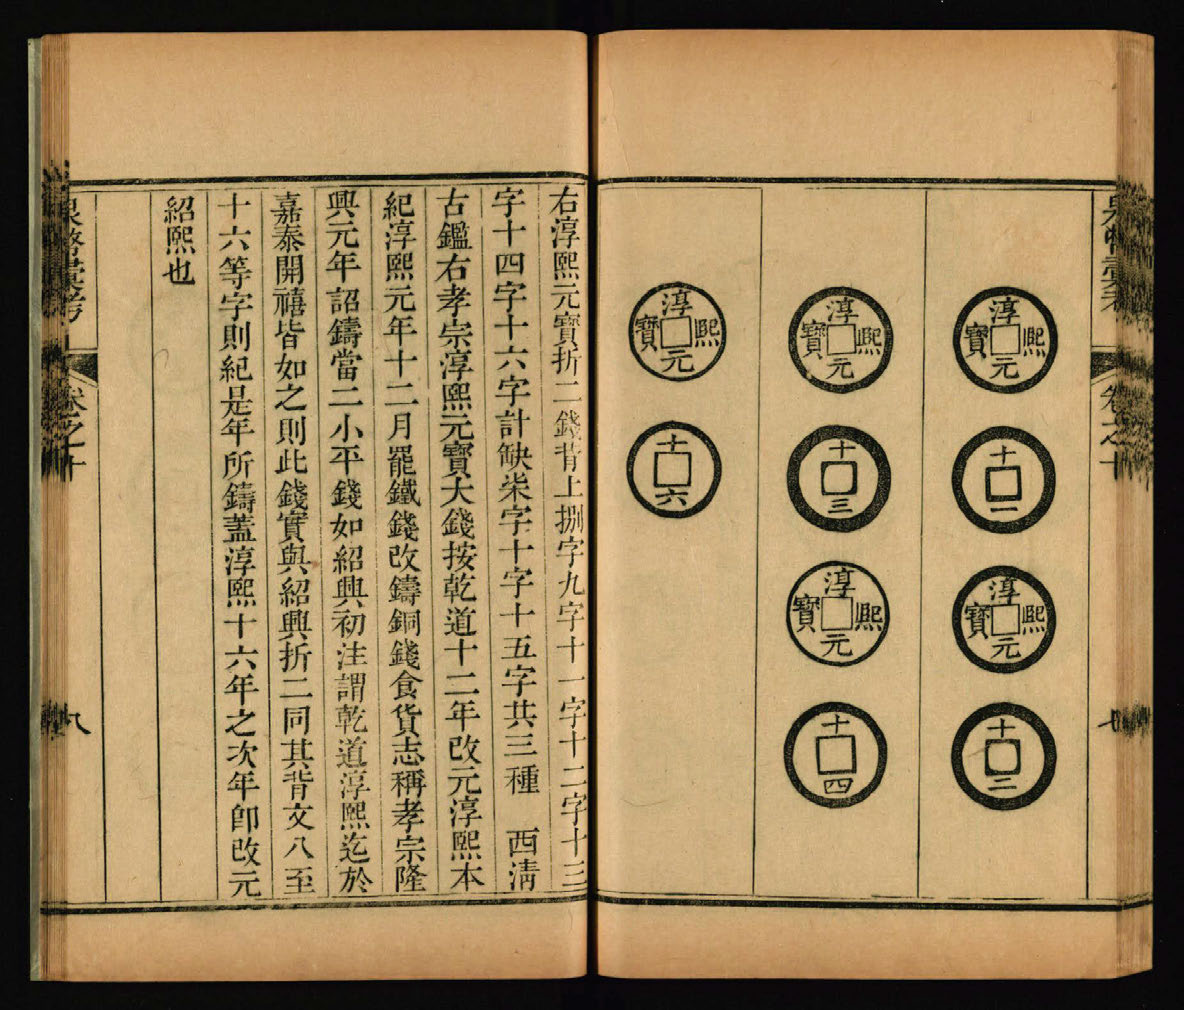 泉幣彙考
卷之十
淳熙元寶
十一
淳熙元寶
十二
淳熙元寶
十三
淳熙元寶
十四
淳熙元寶
十六
右淳熙元寶折二錢背上捌字九字十一字十二字十三
字十四字十六字計缺柒字十字十五字共三種　西清
古鑑右孝宗淳熙元寶大錢按乾道十二年改元淳熙本
紀淳熙元年十二月罷鐵錢改鑄銅錢食貨志稱孝宗隆
興元年詔鑄當二小平錢如紹興初注謂乾道淳熙迄於
嘉泰開禧皆如之則此錢實與紹興折二同其背文八至
十六等字則紀是年所鑄蓋淳熙十六年之次年卽改元
紹熙也
泉幣彙考
卷之十
八